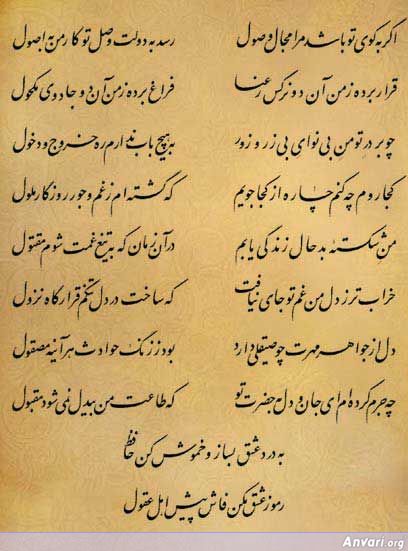 اگر به کوی تو باشد مرا مجال وصول رسد به دولت وصل تو کار من به اصول
قرار برده ز من آن دو نرگس رعنا فراغ برده ز من آن دو جادوی مکحول
چو بر در تو من بی نوای بی زر و زور به هیچ باب ندارم ره خروج و دخول
کجا روم چه کنم چاره از کجا جویم که گشته ام ز غم و جور روزگار ملول
من شکسته بدحال زندگی یابم در آن زمان که به تیغ غمت شوم مقتول
خرابتر ز دل من غم تو جای نیافت که ساخت در دل تنگم قرارگاه نزول
دل از جواهر مهرت چو صیقلی دارد بود ز زنگ حوادث هر آینه مصقول
چه جرم کرده ام ای جان و دل به حضرت تو که طاعت من بیدل نمی شود مقبول
به درد عشق بساز و خموش کن حافظ
رموز عشق مکن فاش پیش اهل عقول
Anvari.org